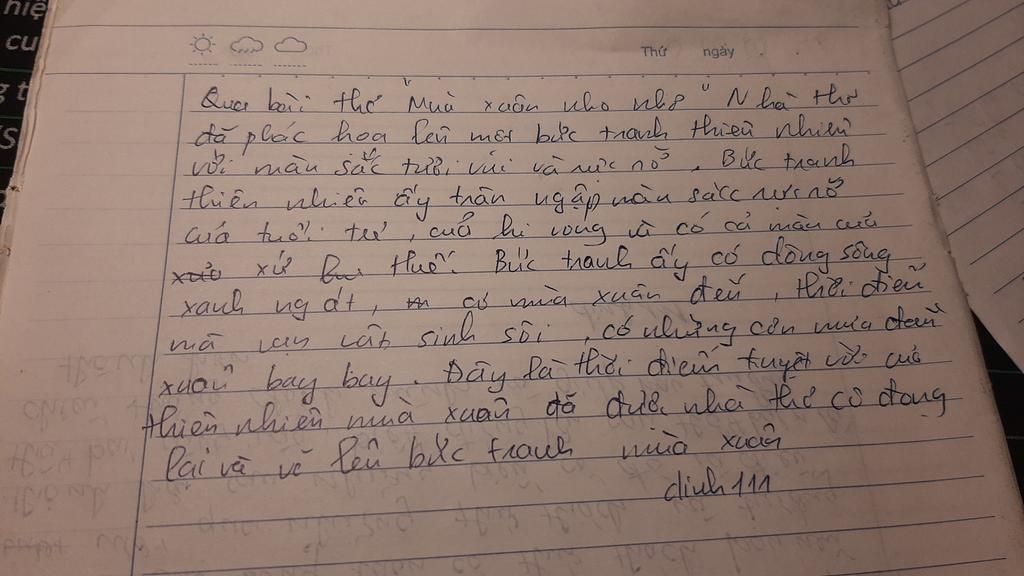 hiệ
cu
Thứ ngày
Qua bài thơ "Mùa xuân nho nhỏ" Nhà thơ
đã phác hoa lên một bức tranh thiên nhiên
với màn sắc tười vui và rực nỡ. Bức tranh
thiên nhiên ấy tràn ngập màn sắc rực nỡ
của tuổi trẻ, của hi vong và có cả màn của
xứ Huế. Bức tranh ấy có dòng sông
xanh ngắt, có mùa xuân đến, thời điểm
mà vạn vật sinh sôi, có những cơn mưa đầu
xuân bay bay. Đây là thời điểm tuyệt vời của
thiên nhiên mùa xuân đã được nhà thơ cô đong
lại và vẽ lên bức tranh mùa xuân
dinh111